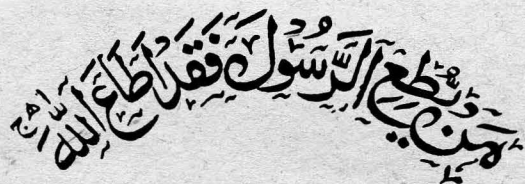 مَن يُطِعِ الرَّسُولَ فَقَدْ اَطَاعَ اللّٰهَ